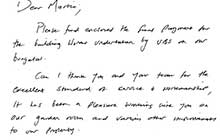 Dear Martin,
Please find enclosed the final payment for
the building works undertaken by UBS on our
bungalow.
Can I thank you and your team for the
excellent standard of service & workmanship,
it has been a pleasure working with you on
our garden room and various other improvements
to our property.